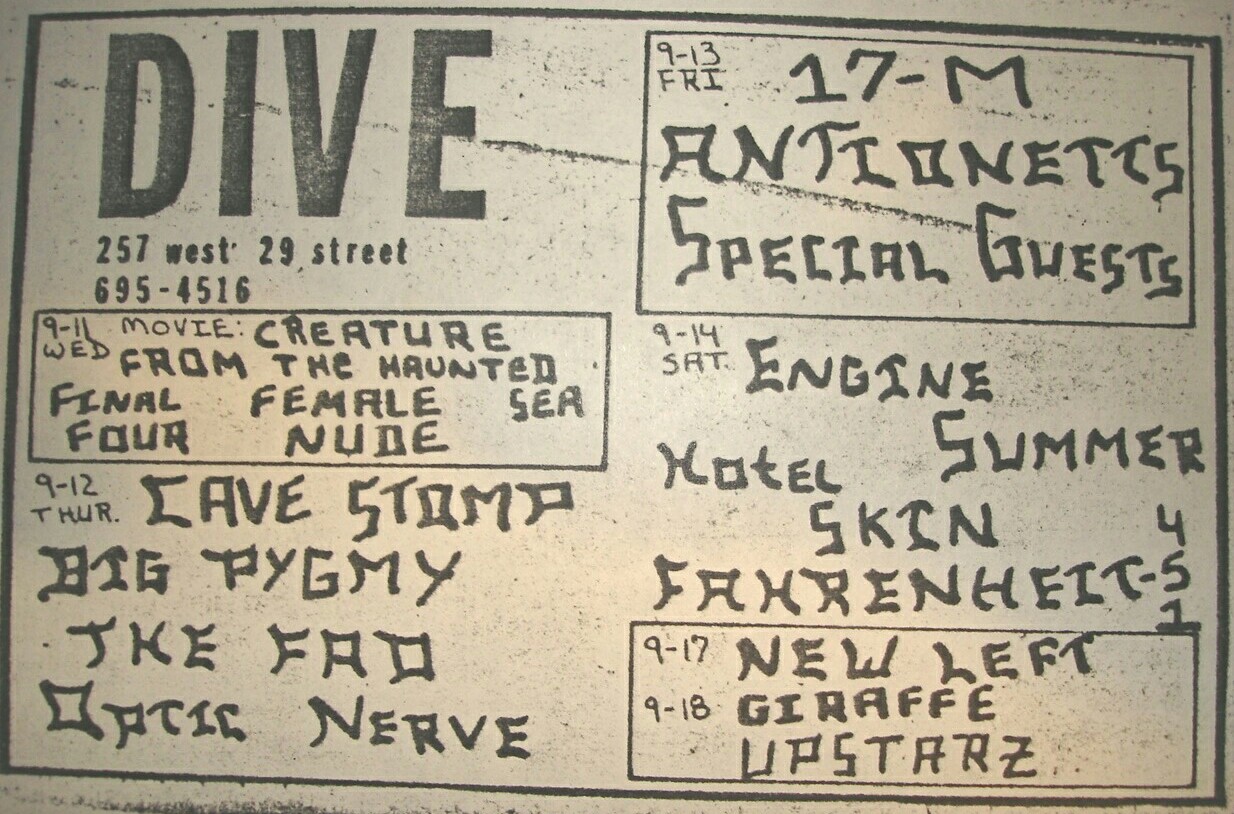 DIVE
257 west 29 street
695-4516
9-11 WED
MOVIE: CREATURE
FROM THE HAUNTED
SEA
FINAL FOUR
FEMALE NUDE
9-12 THUR.
CAVE STOMP
BIG PYGMY
THE FAD
OPTIC NERVE
9-13 FRI
17-M
ANTIONETTS
SPECIAL GUESTS
9-14 SAT.
ENGINE
SUMMER
HOTEL
SKIN
FAHRENHEIT-451
9-17 NEW LEFT
9-18 GIRAFFE
UPSTARZ